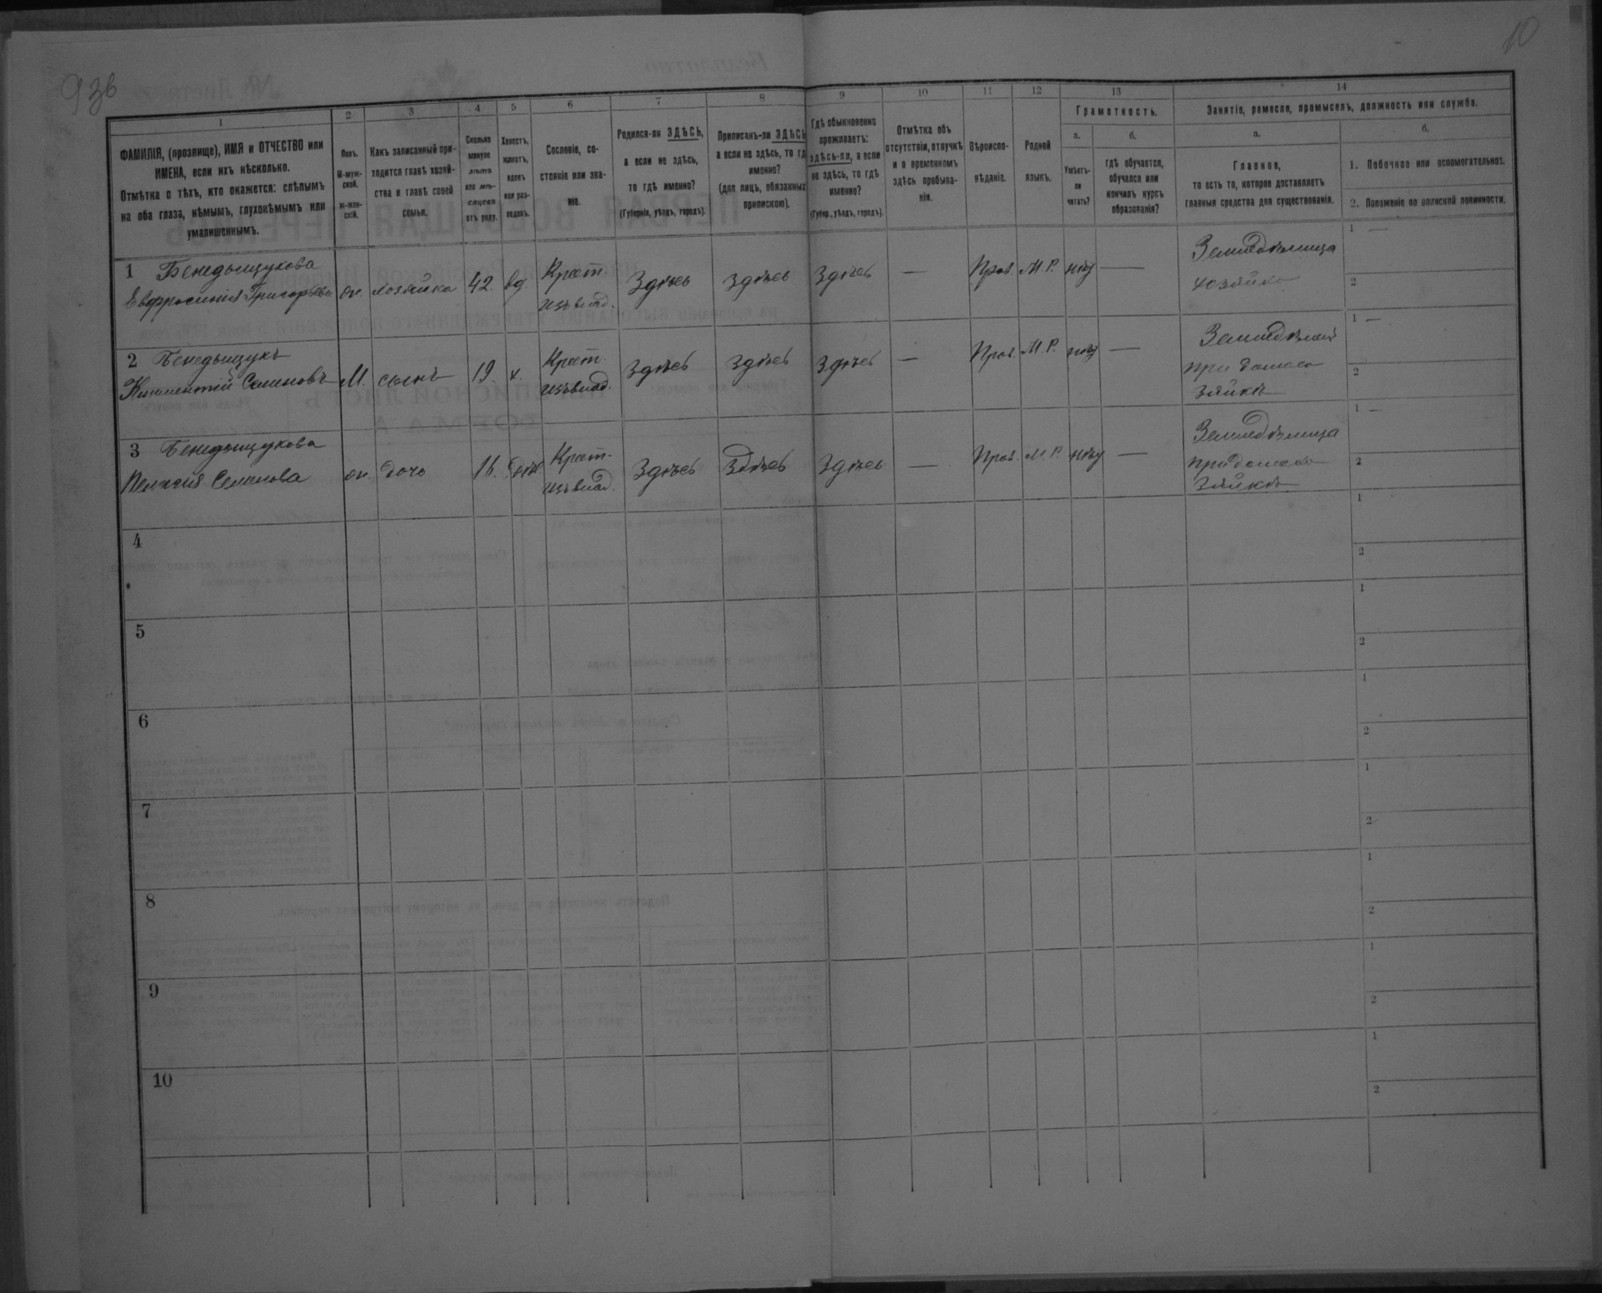 93б
10
1
2
3
4
5
6
7
8
9
10
11
12
13
14
ФАМИЛІЯ, (прозвище), ИМЯ и ОТЧЕСТВО или
ИМЕНА, если ихъ нѣсколько.
Отмѣтка о тѣхъ, кто окажется: слѣпымъ
на оба глаза, нѣмымъ, глухонѣмымъ или
умалишеннымъ.
Полъ.
М-муж-
ской.
Ж-жен-
скій.
Какъ записанный при-
ходится главѣ хозяй-
ства и главѣ своей
семьи.
Сколько
минуло
лѣтъ
или мѣ-
сяцевъ
отъ роду.
Холостъ,
женатъ,
вдовъ
или раз-
веденъ.
Сословіе, со-
стояніе или зва-
ніе.
Родился-ли ЗДѢСЬ,
а если не здѣсь,
то гдѣ именно?
(Губернія, уѣздъ, городъ).
Приписанъ-ли ЗДѢСЬ,
а если не здѣсь, то гдѣ
именно?
(для лицъ, обязанныхъ
припискою).
Гдѣ обыкновенно
проживаетъ:
здѣсь-ли, а если
не здѣсь, то гдѣ
именно?
(Губер., уѣздъ, городъ).
Отмѣтка объ
отсутствіи, отлучкѣ
и о временномъ
здѣсь пребыва-
ніи.
Вѣроиспо-
вѣданіе.
Родной
языкъ.
Грамотность.
а.
Умѣетъ-
ли
читать?
б.
гдѣ обучается,
обучался или
кончилъ курсъ
образованія?
Занятіе, ремесло, промыселъ, должность или служба.
а.
Главное,
то есть то, которое доставляетъ
главныя средства для существованія.
б.
1. Побочное или вспомогательное.
2. Положеніе по воинской повинности.
1 Бенедыщукова
Евфросинія Григорьева ж. хозяйка 42 вд. Крест. изъ влад. Здѣсь здѣсь здѣсь — Прав. М.Р. нѣту — Земледѣлица
хозяйка
1 —
2
2 Бенедыщукъ
Климентій Семеновъ М. сынъ 19 х. Крест. изъ влад. здѣсь здѣсь здѣсь — Прав. М.Р. нѣту —
при домохо
зяйкѣ
1 —
2
3 Бенедыщукова
Пелагія Семенова ж. дочь 16. Крест. изъ влад. здѣсь здѣсь здѣсь — Прав. М.Р. нѣту — Земледѣлица
при домохо
зяйкѣ
1 —
2
4
1
2
5
1
2
6
1
2
7
1
2
8
1
2
9
1
2
10
1
2